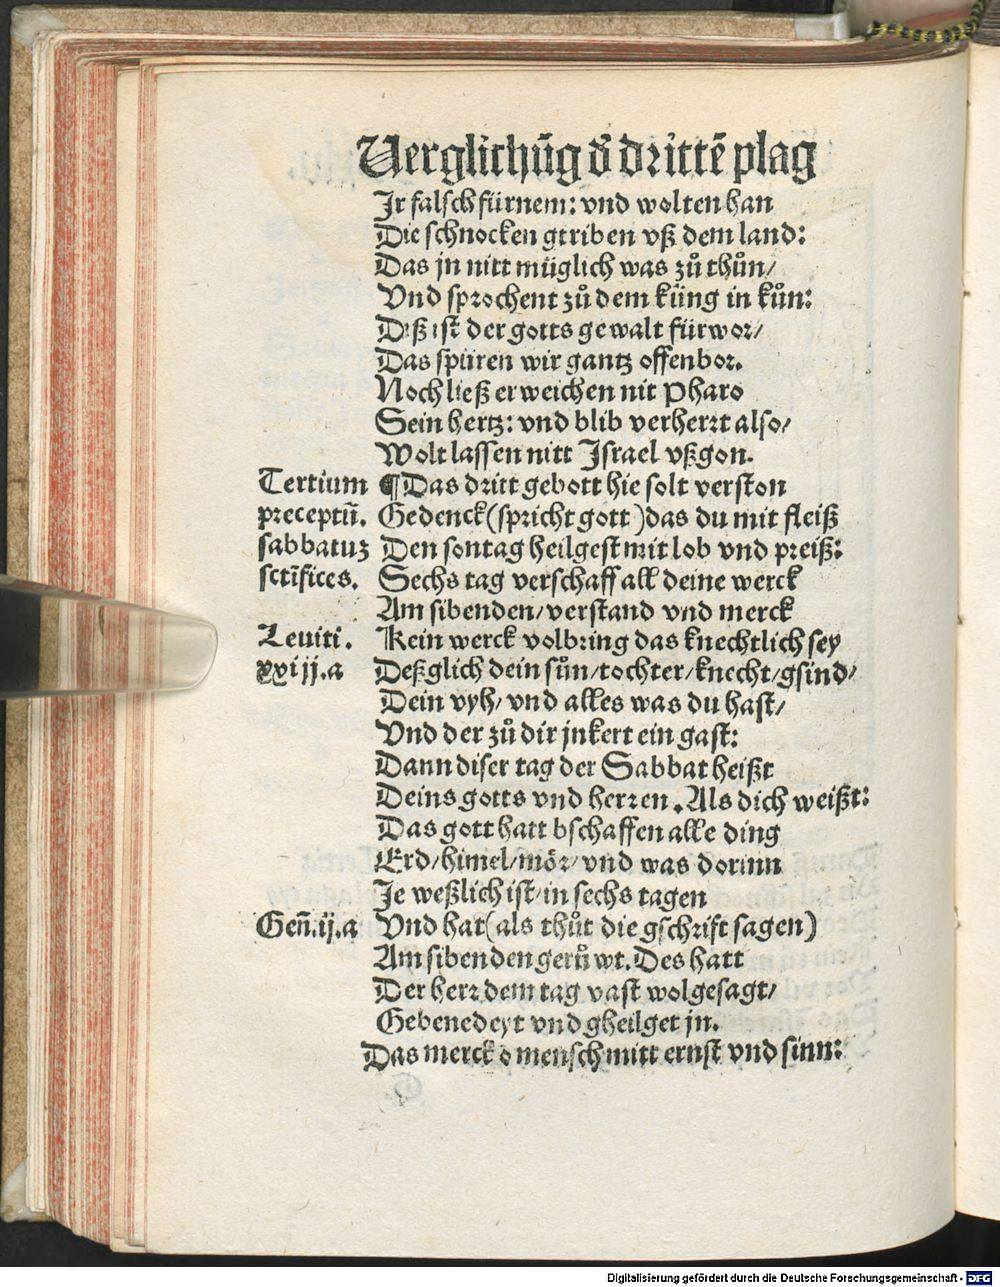 Verglichūg d̄ drittē plag
Jr falsch fürnem: vnd wolten han
Die schnocken gtriben vß dem land:
Das jn nitt müglich was zů thůn/
Vnd sprochent zů dem küng in kůn:
Diß ist der gotts gewalt fürwor/
Das spüren wir gantz offenbor.
Noch ließ erweichen nit Pharo
Sein hertz: vnd blib verherrt also/
Wolt lassen nitt Israel vßgon.
Tertium ¶Das dritt gebott hie solt verston
preceptū. Gedenck (spricht gott) das du mit fleiß
sabbatuz Den sontag heilgest mit lob vnd preiß:
sctīfices. Sechs tag verschaff all deine werck
Am sibenden/ verstand vnd merck
Leuiti. Kein werck volbring das knechtlich sey
xxiij.a Deßglich dein sün/ tochter/ knecht/ gsind/
Dein vyh/ vnd alles was du hast/
Vnd der zů dir jnkert ein gast:
Dann diser tag der Sabbat heißt
Deins gotts vnd herren. Als dich weißt:
Das gott hatt bschaffen alle ding
Erd/ himel/ mör/ vnd was dorinn
Je weßlich ist/ in sechs tagen
Geñ.ij.a Vnd hat (als thůt die gschrift sagen)
Am sibenden gerůwt. Des hatt
Der herr dem tag vast wolgesagt/
Gebenedeyt vnd gheilget jn.
Das merck o mensch mitt ernst vnd sinn:
Digitalisierung gefördert durch die Deutsche Forschungsgemeinschaft - DFG